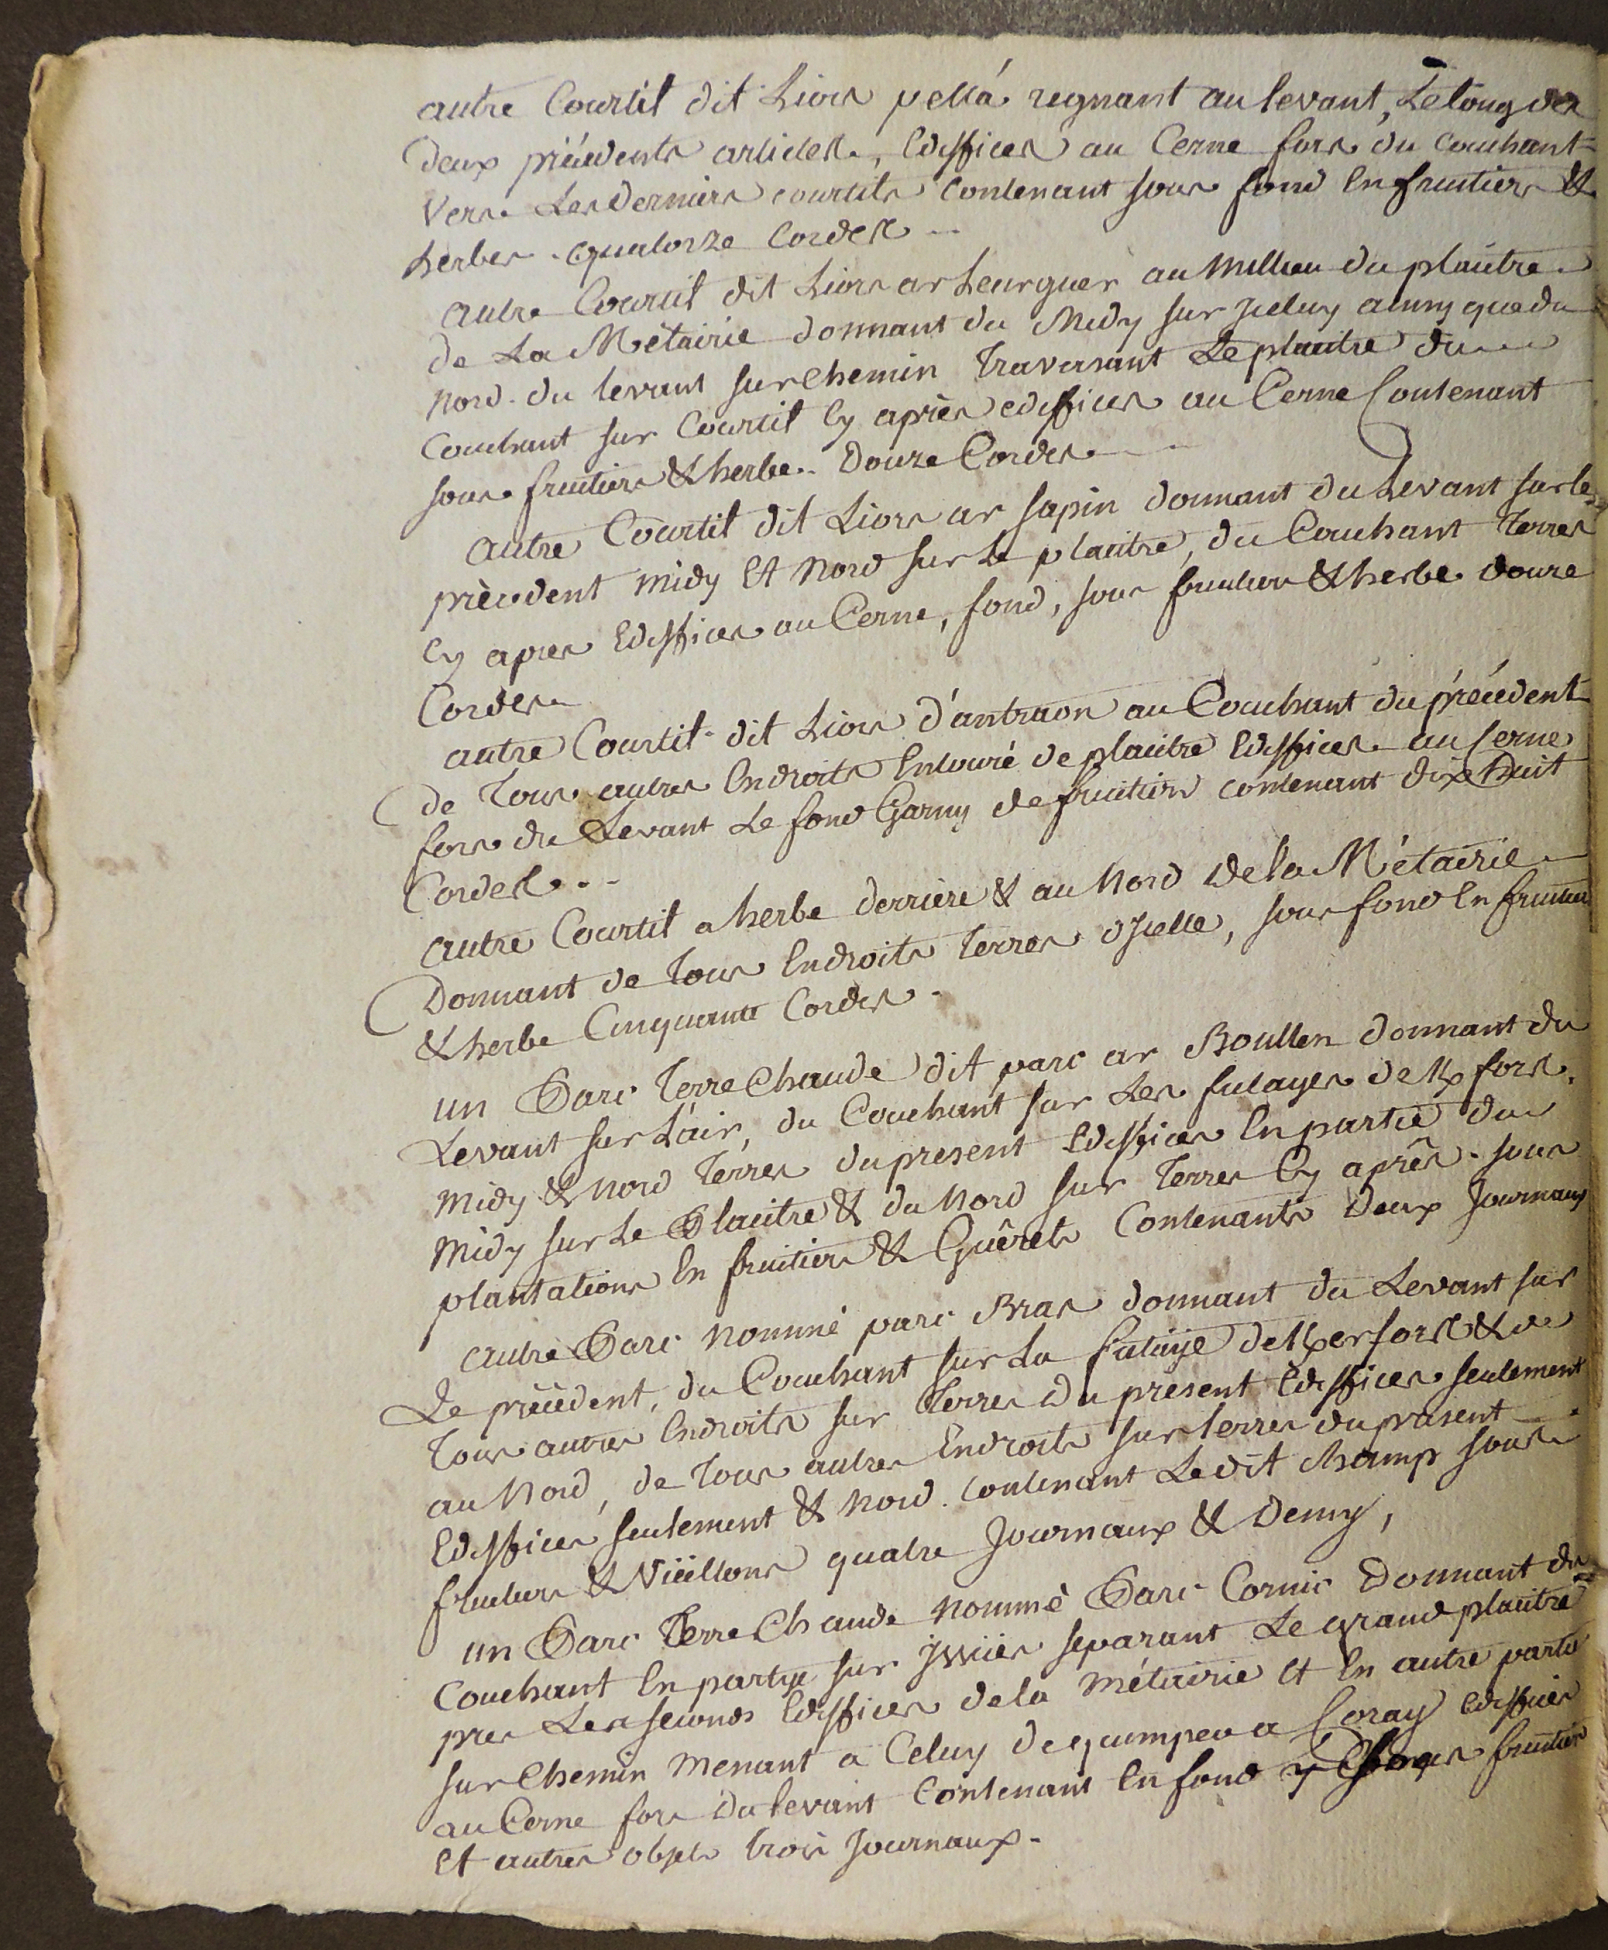 autre Courtil dit Liors pella regnant au levant, Le long des
deux précédents articles, Ediffices au Cerne fors du couchant
vers Les derniers courtils contenant sous fond En fruitiers &
herbes quatorze Cordes
autre Courtil dit Liors ar Leurguer au Millieu du plaitre
de La Métairie donnant du Midy sur Jceluy ainsy que du
Nord. du levant sur chemin Traversant Le plaitre du
Couchant sur Courtil Cy après ediffices au Cerne Contenant
sous fruitiers & herbe Douze Cordes
autre Courtil dit Liors ar sapin donnant du Levant sur le
précedent midy Et Nord sur Le plaitre, du Couchant Terres
Cy apres Ediffices au Cerne, fond, sous fruitiers & herbe douze
Cordes
autre Courtil dit Liors d'antraon au Couchant du précédent
de Tous autres Endroits Entouré de plaitre Ediffices au Cerne
fors du Levant Le fond Garny de fruitiers contenant dix huit
Cordes
autre Courtil a herbe derriere & au Nord de la Métairie
Donnant de Tous Endroits Terres d'Jcelle, sous fond En fruitiers
& herbe Cinquante Cordes
un Parc Terre Chaude dit parc ar Boullen donnant du
Levant sur L'air, du Couchant sur Les futayes de Kfors,
midy & Nord Terres du present Ediffices En partie du
Midy sur Le Plaitre & du Nord sur Terres Cy après sous
plantations En fruitiers & Guérets Contenants deux Journaux
autre Parc nommé parc Bras donnant du Levant sur
Le précédent, du Couchant sur La futaye de Kerfors & de
Tous autres Endroits sur Terres du présent Ediffices seulement
au Nord, de Tous autres Endroits sur terres du présent
Ediffices seulement & Nord. Contenant Le dit champ sous
fruitiers & Vieillons quatre Journaux & Demy,
un Parc Terre Chaude nommé Parc Cornic Donnant du
Couchant En partye sur Jssües separant Le grand plaitre
pres Les seconds Ediffices de la Métairie Et En autre partie
sur Chemin Menant a Celuy de quimper a Coray Ediffices
au Cerne fors du levant Contenant En fond fruitiers
Et autres objets trois Journaux.